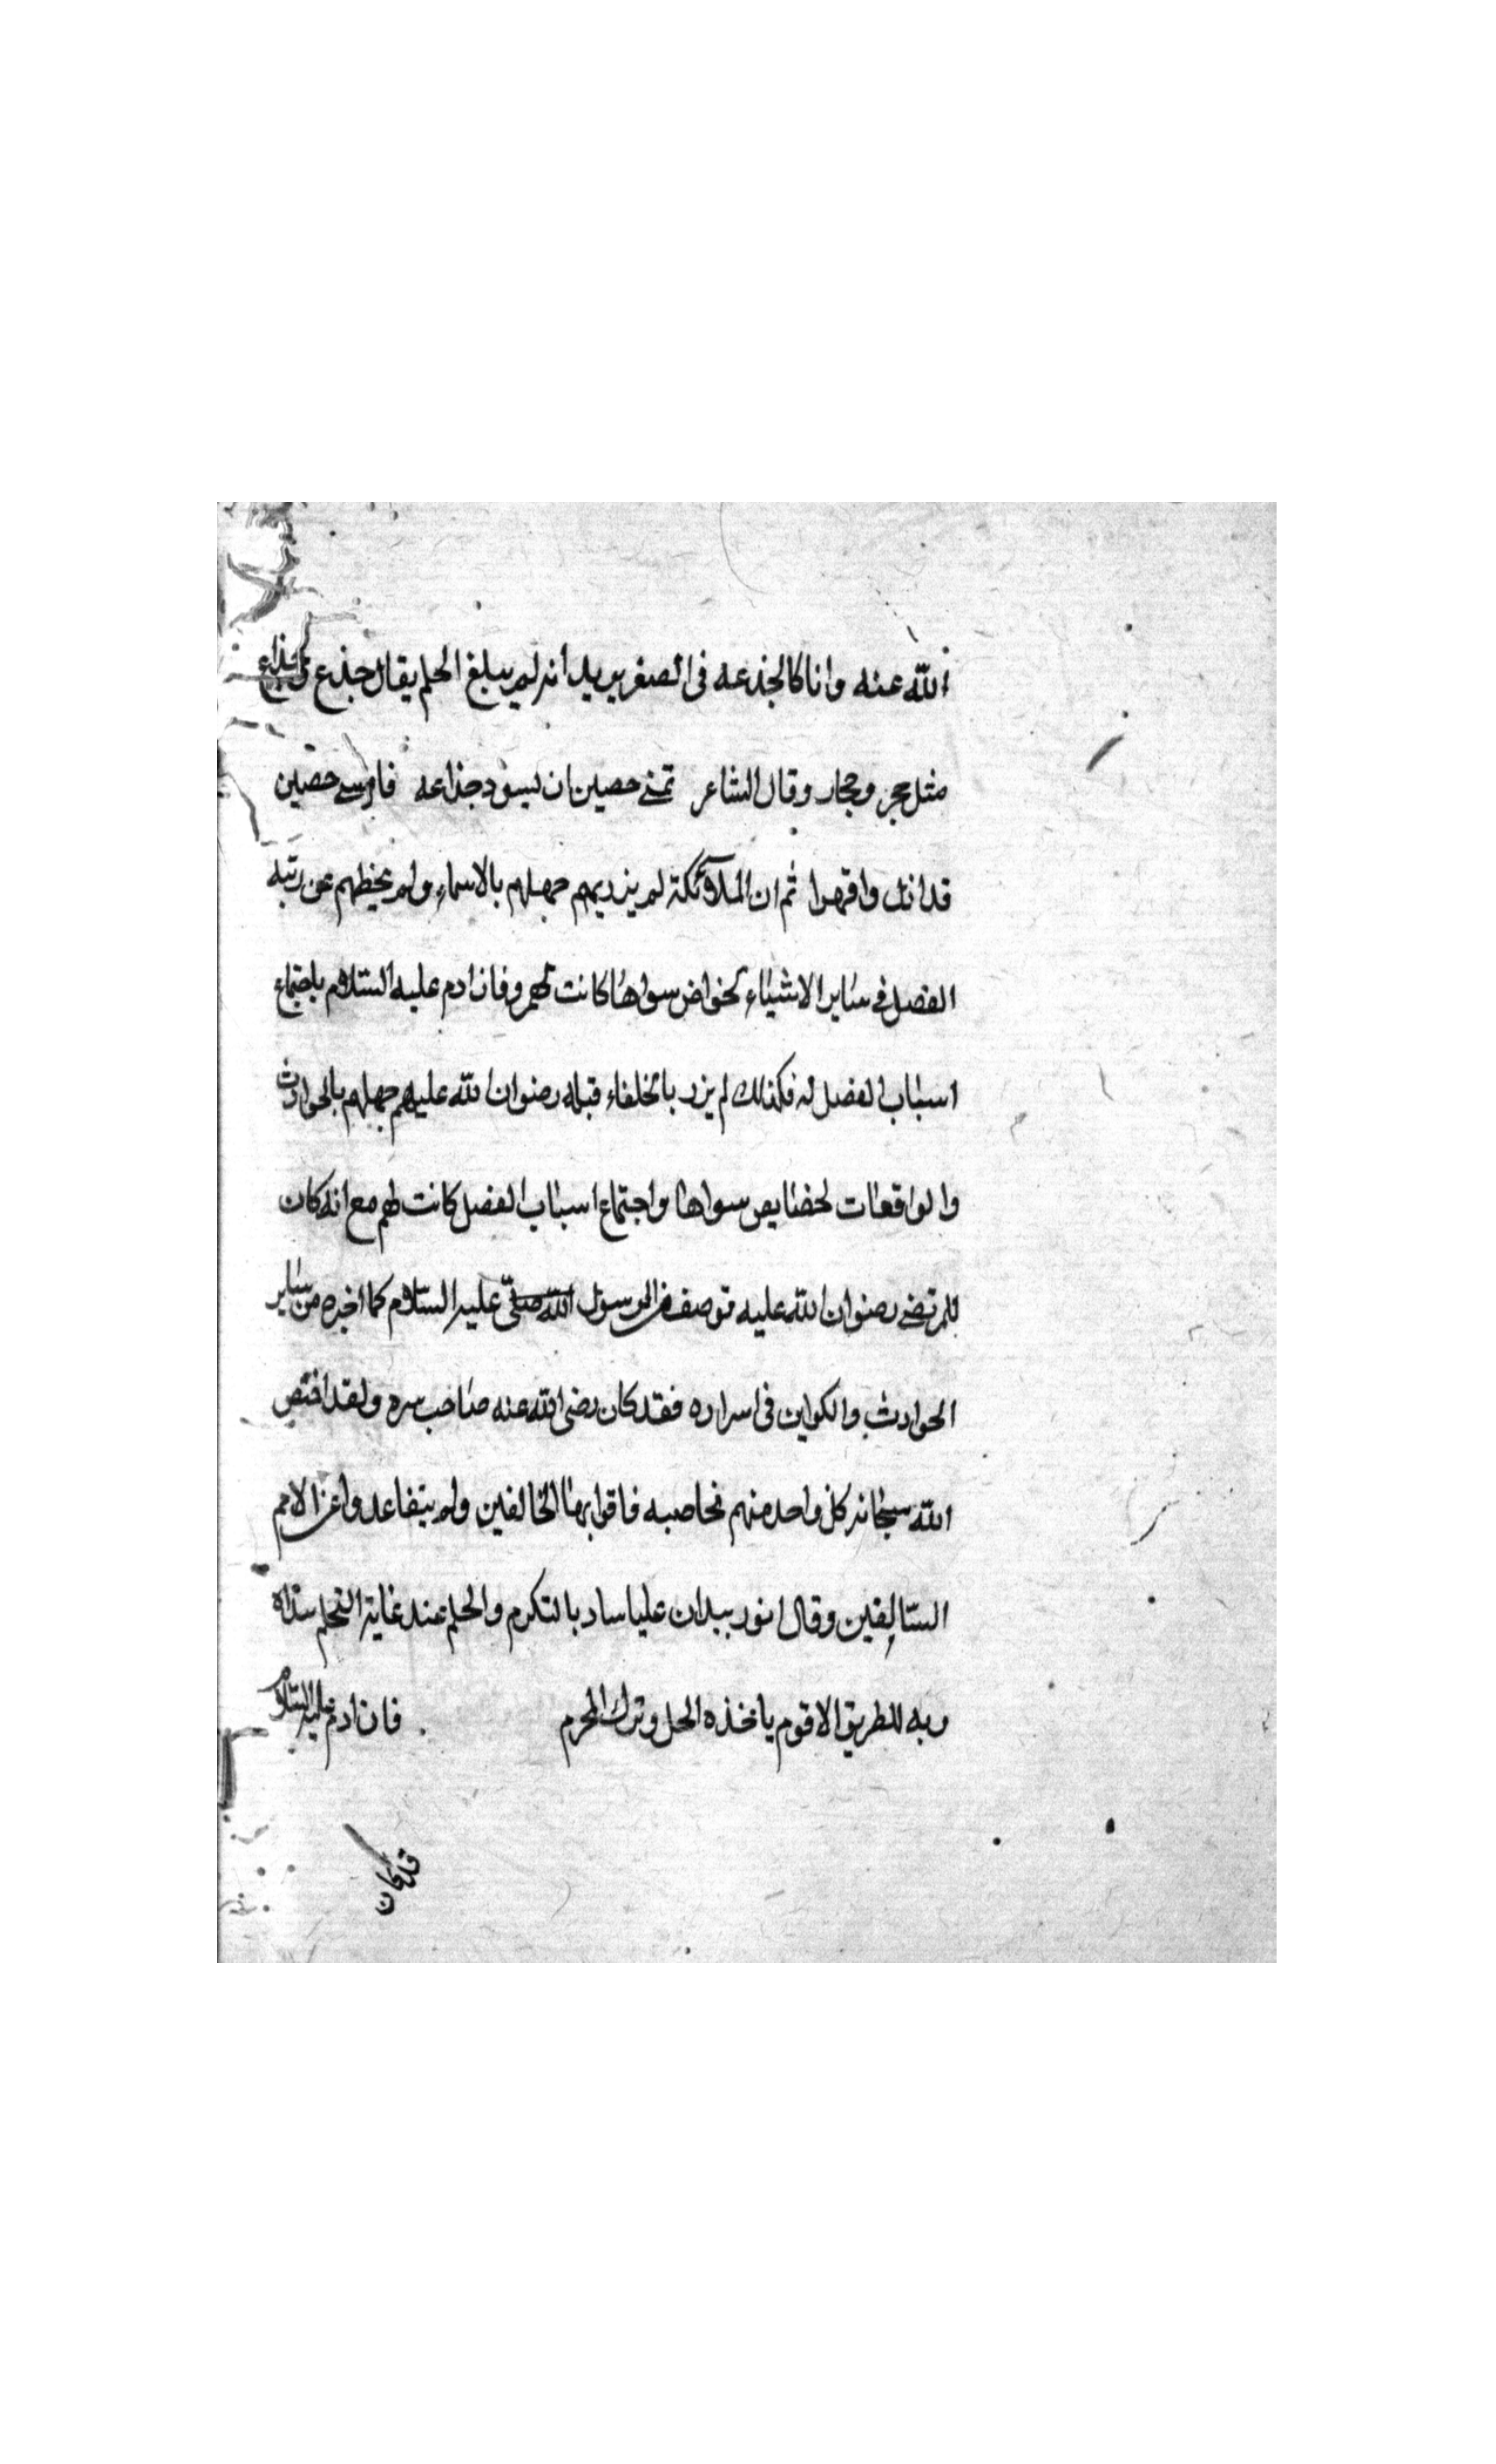 الله عنه وانا كالجذعه فى الصغر يريد انه لم يبلغ الحلم يقال جذع وجذاع
مثل حجر وحجار وقال الشاعر تمنى حصين ان يسود جذاعه فامسى حصين
قد اذل واقهرا ثم ان الملآئكة لم يزديهم جهلهم بالاسماء ولم يحطهم عن رتبه
الفضل فى سٰاير الاشيٰاء لخواص سواهٰا كانت لهم وفاز ادم عليه السّلام باجتماع
اسبٰاب الفضل له فكذلك لم يزر بالخلفاء قبله رضوان الله عليهم جهلهم بالحوادث
والواقعٰات لخصٰايص سواهٰا واجتماع اسبٰاب الفضل كانت لهم مع انه كان
للمرتضى رضوان الله عليه توصف الرسول الله صلّى عليه السّلام كما اخبره من سٰاير
الحوادث والكواين فى اسراره فقد كان رضى الله عنه صٰاحب سره ولقد اختص
الله سبحٰانه كل واحد منهم بخاصيه فاقوا بهٰا الخالفين ولم يتقاعدوا عن الامم
السّالفين وقال ان عليا ساد بالتكرم والحلم عند غٰاية التحلم هداه
ربه للطريق الاقوم ياخذه الحل وترك المحرم فان ادم عليه السّلام
قد كان